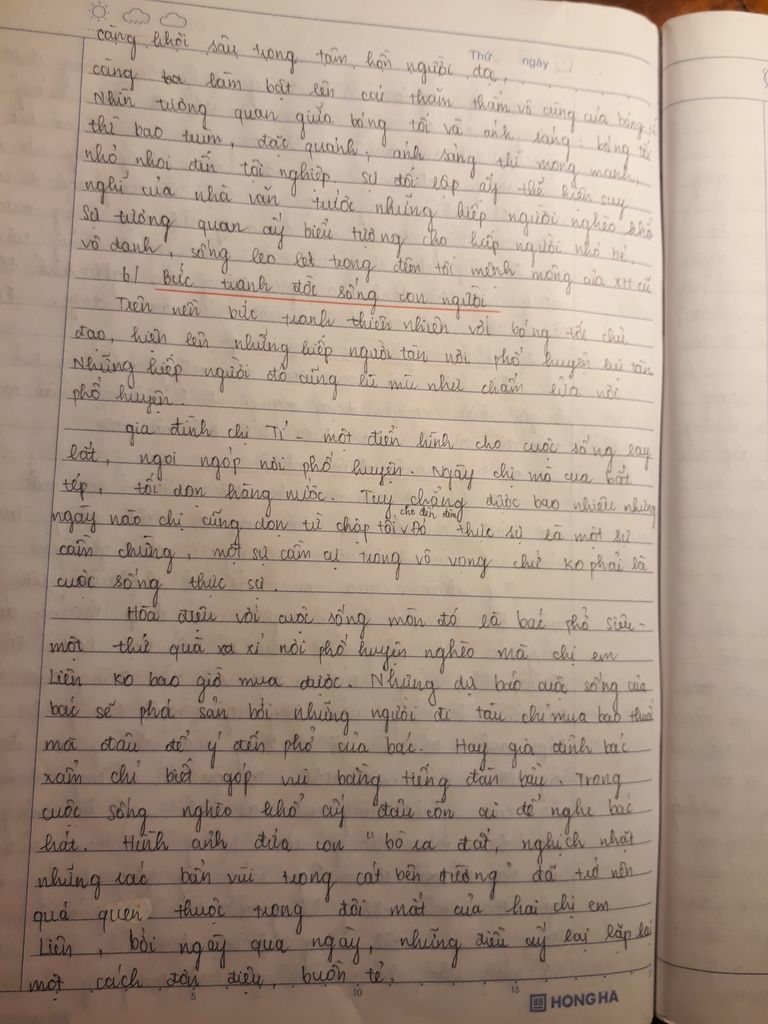 Thứ ngày
càng khơi sâu trong tâm hồn người đọc,
càng làm bật lên cái thăm thẳm vô cùng của bóng tối
Nhìn tương quan giữa bóng tối và ánh sáng: bóng tối
thì bao trùm, đặc quánh, ánh sáng thì mong manh,
nhỏ nhoi đến tội nghiệp. Sự đối lập ấy thể hiện suy
nghĩ của nhà văn trước những kiếp người nghèo khổ
Sự tương quan ấy biểu tượng cho kiếp người nhỏ bé,
vô danh, sống leo lét trong đêm tối mênh mông của XH cũ
b/ Bức tranh đời sống con người
Trên nền bức tranh thiên nhiên với bóng tối chủ
đạo, hiện lên những kiếp người tàn nơi phố huyện lụi tàn
Những kiếp người đó cũng lù mù như chấm lửa nơi
phố huyện.
Gia đình chị Tí - một điển hình cho cuộc sống lay
lắt, ngoi ngóp nơi phố huyện. Ngày chị mò cua bắt
tép, tối dọn hàng nước. Tuy chẳng được bao nhiêu nhưng
ngày nào chị cũng dọn từ chập tối cho đến đêm. Đó thực sự là một sự
cầm chừng, một sự cầm cự trong vô vọng chứ ko phải là
cuộc sống thực sự.
Hòa điệu với cuộc sống mòn đó là bác phở Siêu -
một thứ quà xa xỉ nơi phố huyện nghèo mà chị em
Liên ko bao giờ mua được. Những dự báo cuộc sống của
bác sẽ phá sản bởi những người đi tàu chỉ mua bao thuốc
mà đâu để ý đến phở của bác. Hay gia đình bác
xẩm chỉ biết góp vui bằng tiếng đàn bầu. Trong
cuộc sống nghèo khổ ấy đâu còn ai để nghe bác
hát. Hình ảnh đứa con "bò ra đất, nghịch nhặt
những rác bẩn vùi trong cát bên đường" đã trở nên
quá quen thuộc trong đôi mắt của hai chị em
Liên, bởi ngày qua ngày, những điều ấy lại lặp lại
một cách đơn điệu, buồn tẻ.
5 10 15
HONG HA